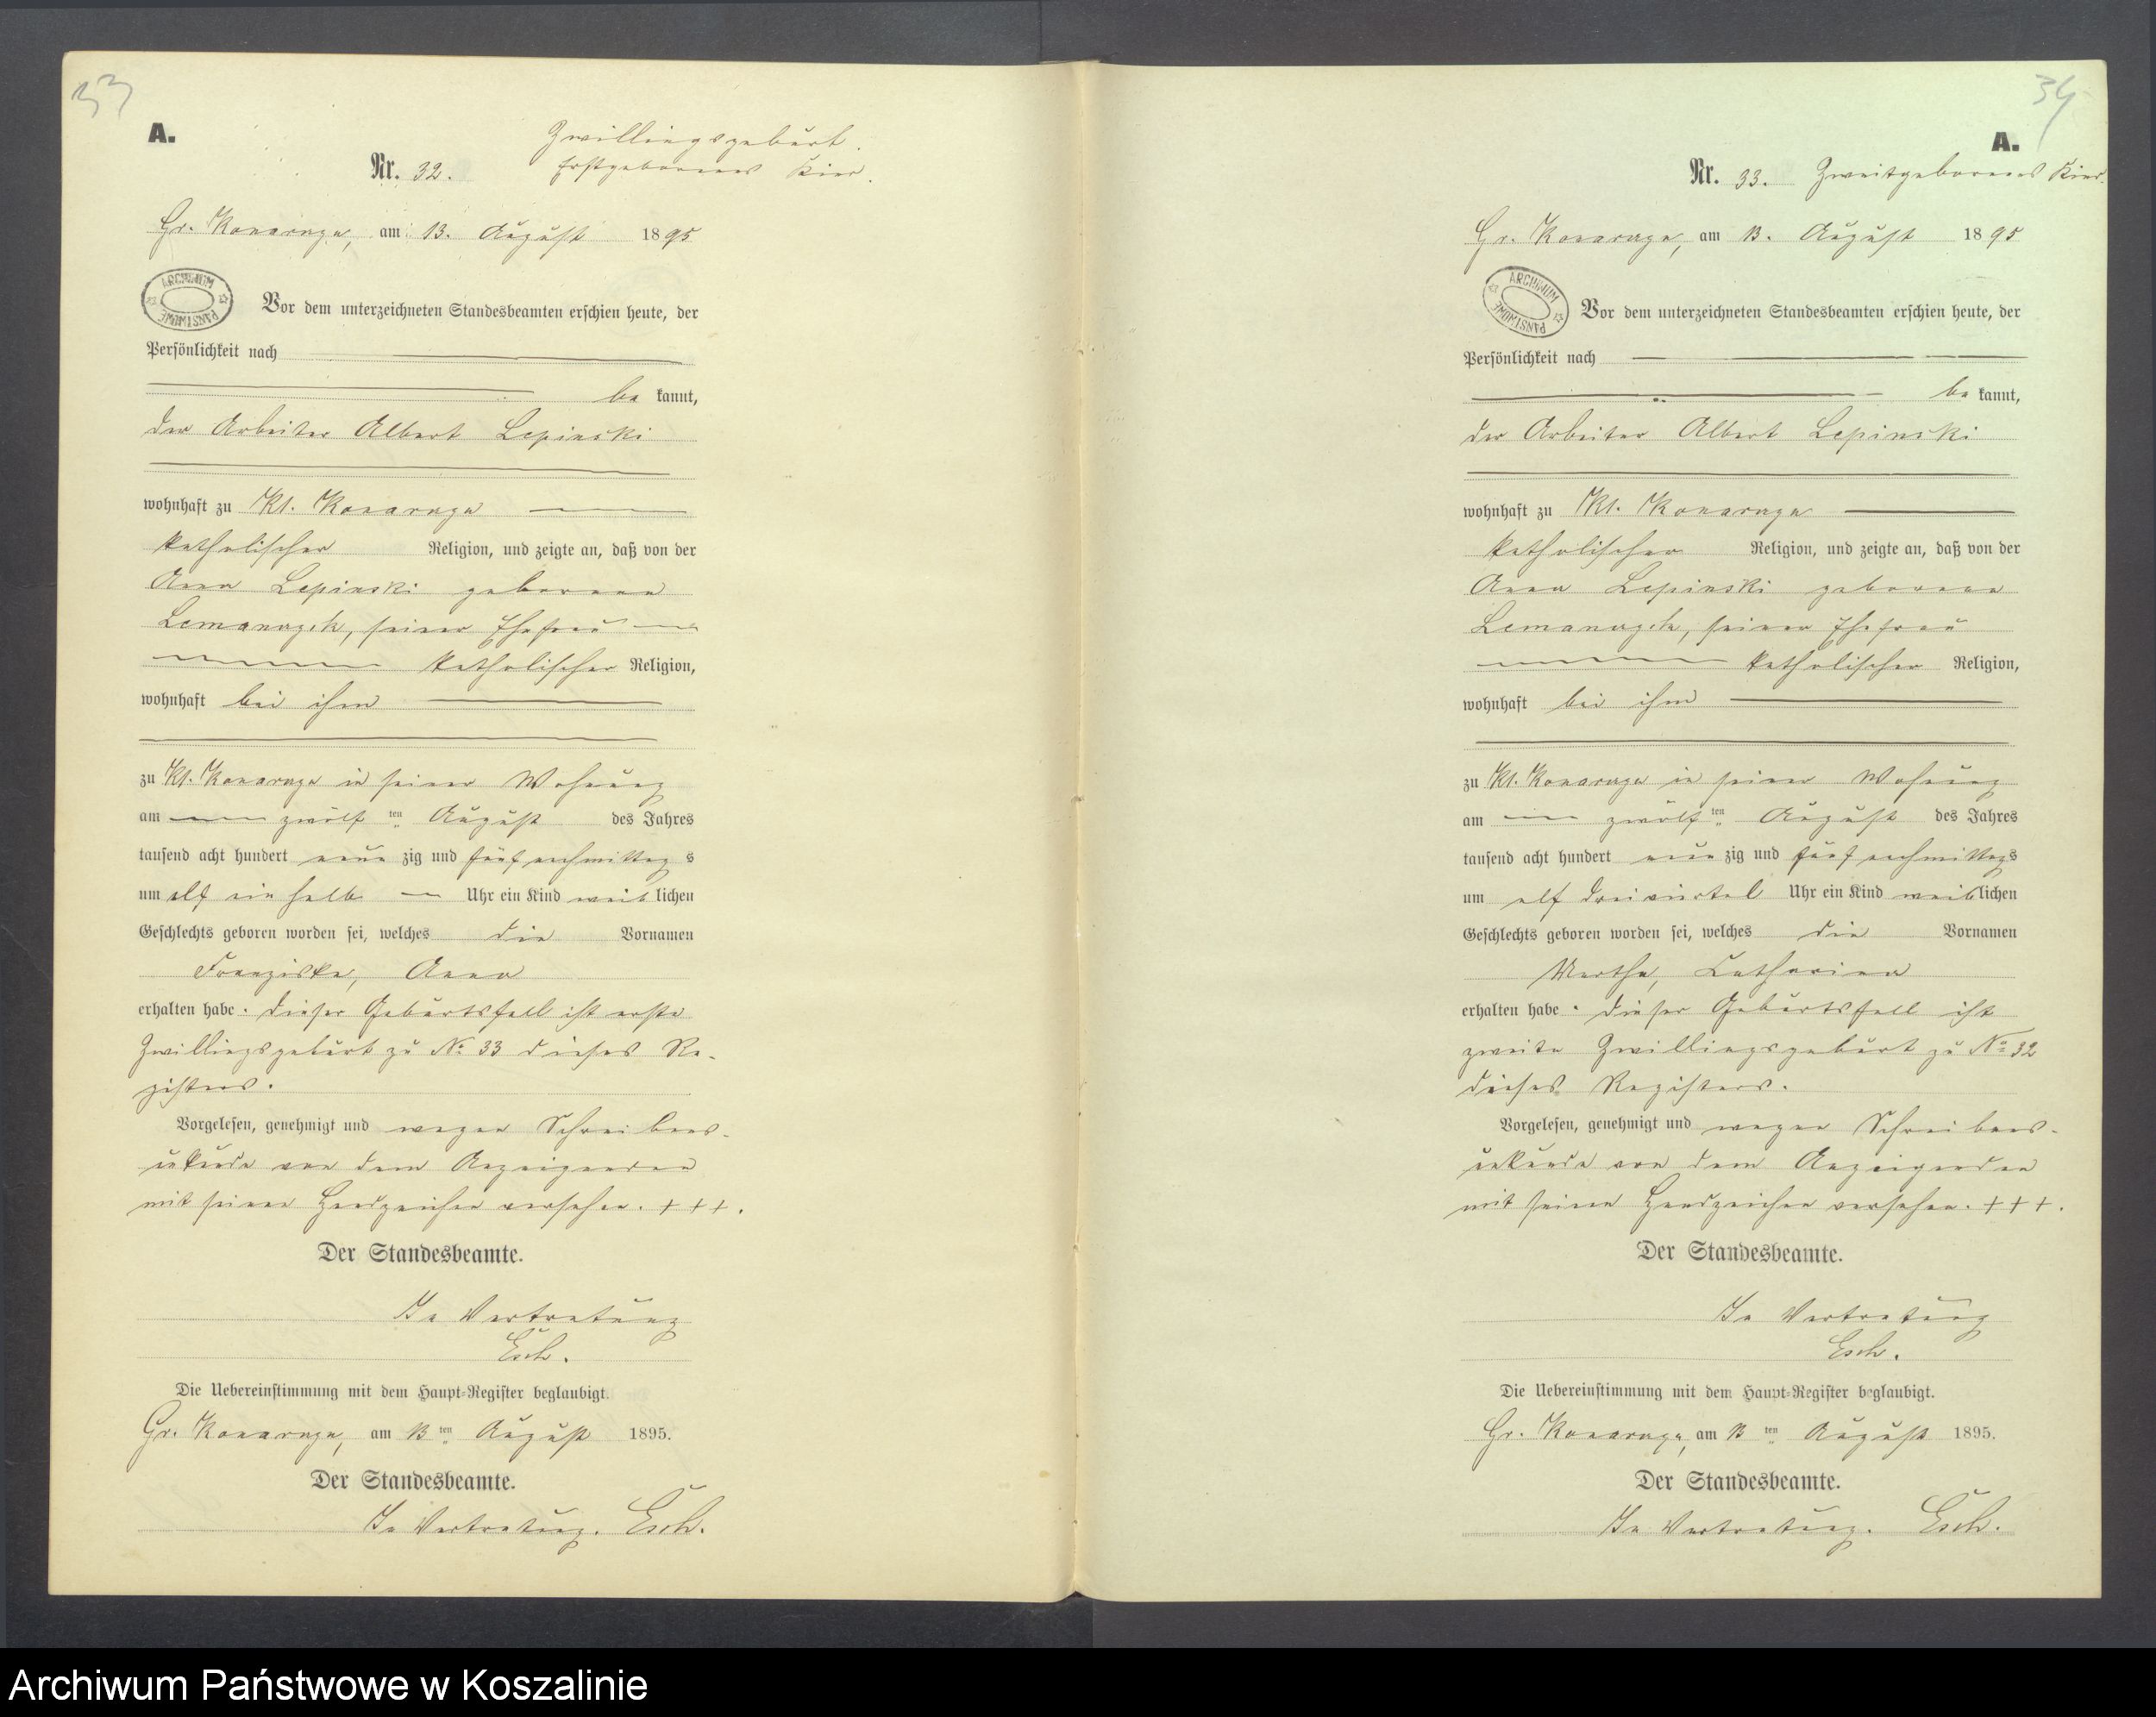 33
A.
Zwillingsgeburt.
Nr. 32. Erstgeborenes Kind.
Gr. Konarzyn, am 13. August 1895
ARCHIWUM PAŃSTWOWE
Vor dem unterzeichneten Standesbeamten erschien heute, der
Persönlichkeit nach
be kannt,
der Arbeiter Albert Lepinski
wohnhaft zu Kl. Konarzyn
katholischer Religion, und zeigte an, daß von der
Anna Lepinski geborenen
Lemanczyk, seiner Ehefrau
katholischer Religion,
wohnhaft bei ihm
zu Kl. Konarzyn in seiner Wohnung
am zwölf ten August des Jahres
tausend acht hundert neun zig und fünf nachmittag s
um elf ein halb Uhr ein Kind weib lichen
Geschlechts geboren worden sei, welches die Vornamen
Franziska, Anna
erhalten habe. Dieser Geburtsfall ist erste
Zwillingsgeburt zu No 33 dieses Re-
gisters.
Vorgelesen, genehmigt und wegen Schreibens-
unkunde von dem Anzeigenden
mit seinen Handzeichen versehen. +++.
Der Standesbeamte.
In Vertretung
Esch.
Die Uebereinstimmung mit dem Haupt-Register beglaubigt.
Gr. Konarzyn, am 13 ten August 1895.
Der Standesbeamte.
In Vertretung. Esch.
34
A.
Nr. 33. Zweitgeborenes Kind.
Gr. Konarzyn, am 13. August 1895
ARCHIWUM PAŃSTWOWE
Vor dem unterzeichneten Standesbeamten erschien heute, der
Persönlichkeit nach
be kannt,
der Arbeiter Albert Lepinski
wohnhaft zu Kl. Konarzyn
katholischer Religion, und zeigte an, daß von der
Anna Lepinski geborenen
Lemanczyk, seiner Ehefrau
katholischer Religion,
wohnhaft bei ihm
zu Kl. Konarzyn in seiner Wohnung
am zwölf ten August des Jahres
tausend acht hundert neun zig und fünf nachmittags
um elf dreiviertel Uhr ein Kind weib lichen
Geschlechts geboren worden sei, welches die Vornamen
Martha, Catharina
erhalten habe. Dieser Geburtsfall ist
zweite Zwillingsgeburt zu No 32
dieses Registers.
Vorgelesen, genehmigt und wegen Schreibens-
unkunde von dem Anzeigenden
mit seinen Handzeichen versehen. +++.
Der Standesbeamte.
In Vertretung
Esch.
Die Uebereinstimmung mit dem Haupt-Register beglaubigt.
Gr. Konarzyn, am 13 ten August 1895.
Der Standesbeamte.
In Vertretung. Esch.
Archiwum Państwowe w Koszalinie